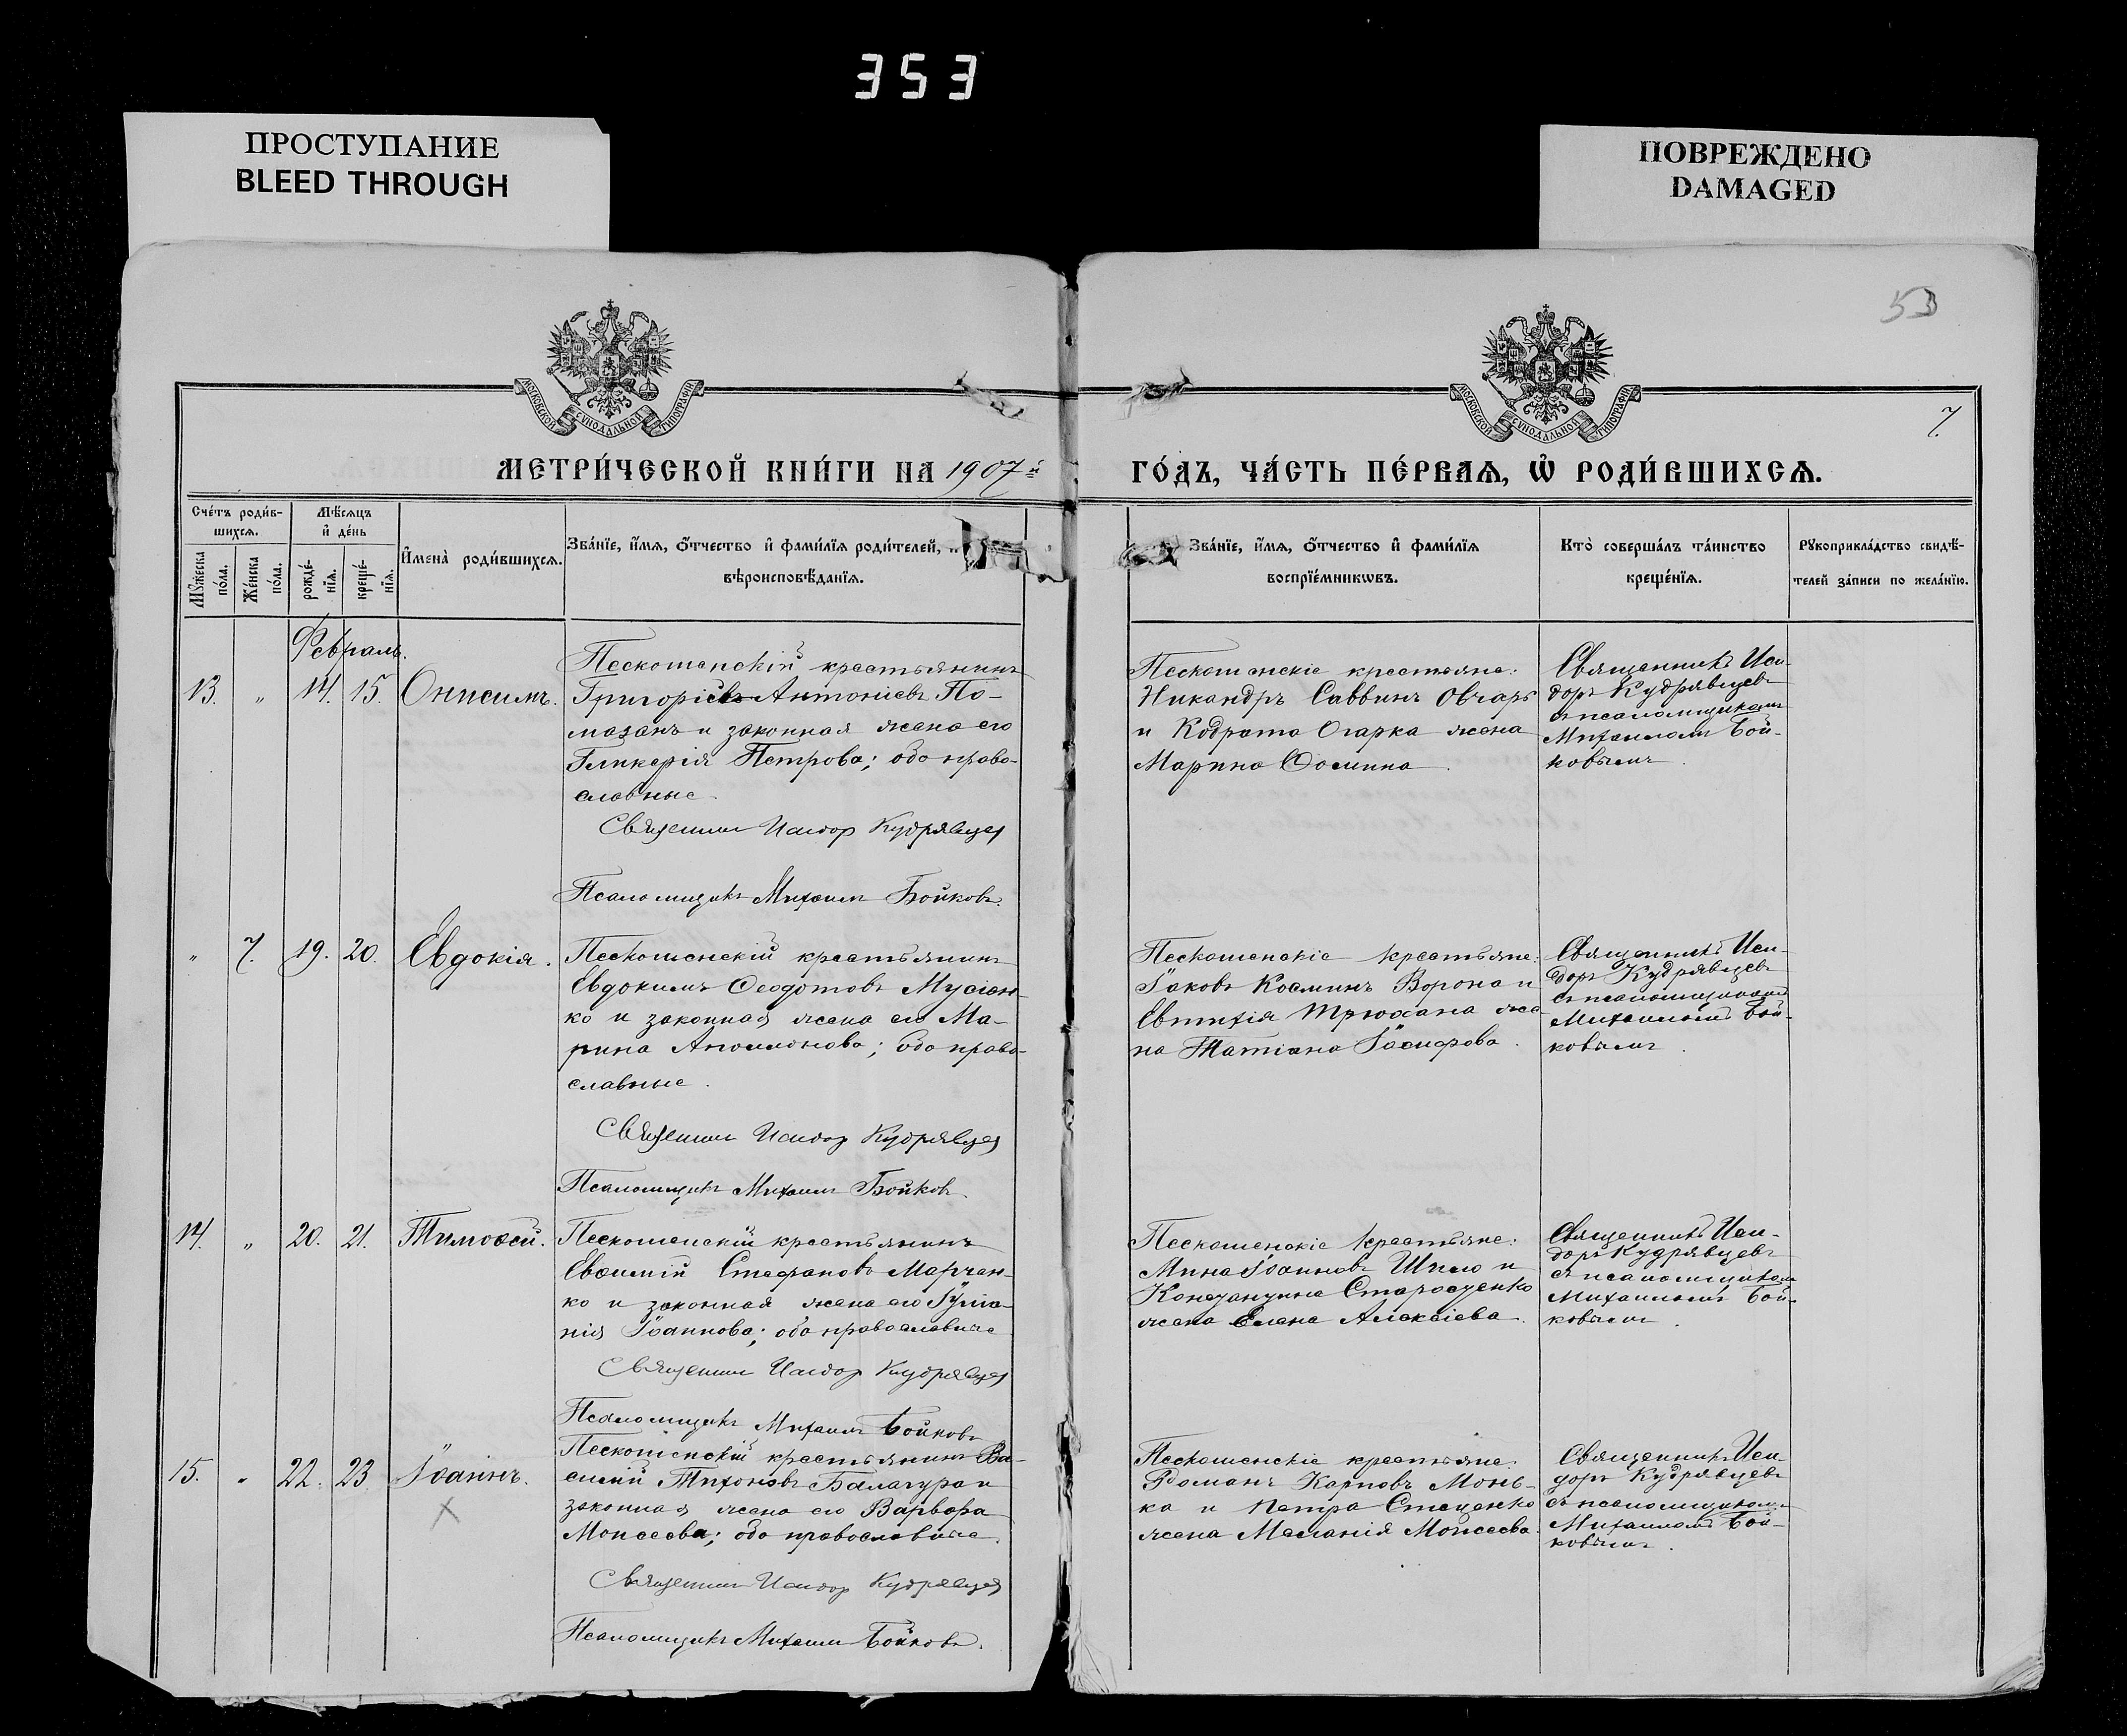 353
ПРОСТУПАНИЕ
BLEED THROUGH
ПОВРЕЖДЕНО
DAMAGED
53
МОСКОВСКОЙ СѴНОДАЛЬНОЙ ТИПОГРАФІИ
МОСКОВСКОЙ СѴНОДАЛЬНОЙ ТИПОГРАФІИ
7.
МЕТРИ́ЧЕСКОЙ КНИ́ГИ НА 1907й
ГО́ДЪ, ЧА́СТЬ ПЕ́РВАѦ, Ѡ҆ РОДИ́ВШИХСѦ.
Сче́тъ роди́в-
шихсѧ.
Мѣ́сѧцъ
и҆ де́нь
Мꙋ́жеска
по́ла.
Же́нска
по́ла.
рожде́-
нїѧ.
креще́-
нїѧ.
И҆мена̀ роди́вшихсѧ.
Зва́нїе, и҆́мѧ, ѻ҆́тчество и҆ фами́лїѧ роди́телей,
вѣроисповѣ́данїѧ.
Зва́нїе, и҆́мѧ, ѻ҆́тчество и҆ фами́лїѧ
воспрїе́мникѡвъ.
Кто̀ соверша́лъ та́инство
креще́нїѧ.
Рꙋкоприкла́дство свидѣ́-
телей за́писи по жела́нїю.
Февраль.
13. „ 14. 15. Онисимъ.
Пескошенскій крестьянинъ
Григорій Антоніевъ По-
мазанъ и законная жена его
Гликерія Петрова; оба право-
славные.
Священник Исидор Кудрявцев
Псаломщикъ Михаилъ Бойковъ.
Пескошенскіе крестьяне:
Никандръ Саввинъ Овчаръ
и Кодрата Огарка жена
Марина Ѳомина.
Священникъ Иси-
доръ Кудрявцевъ
съ псаломщикомъ
Михаиломъ Бой-
ковымъ.
„ 7. 19. 20. Евдокія.
Пескошенскій крестьянинъ
Евдокимъ Ѳеодотовъ Мусіен-
ко и законная жена его Ма-
рина Аполлонова; оба право-
славные.
Священник Исидор Кудрявцев
Псаломщикъ Михаилъ Бойковъ.
Пескошенскіе крестьяне:
Іаковъ Косминъ Ворона и
Евтихія Трюхана же-
на Татіана Іосифова.
Священникъ Иси-
доръ Кудрявцевъ
съ псаломщикомъ
Михаиломъ Бой-
ковымъ.
14. „ 20. 21. Тимоѳей.
Пескошенскій крестьянинъ
Евѳимій Стефановъ Марчен-
ко и законная жена его Іуліа-
нія Іоаннова; оба православные
Священник Исидор Кудрявцев
Псаломщикъ Михаилъ Бойковъ
Пескошенскіе крестьяне:
Мина Іоанновъ Шило и
Константина Старосуенко
жена Елена Алексіева.
Священникъ Иси-
доръ Кудрявцевъ
съ псаломщикомъ
Михаиломъ Бой-
ковымъ.
15. „ 22. 23. Іоаннъ.
Пескошенскій крестьянинъ Ва-
силій Тихоновъ Балагура и
законная жена его Варвара
Моисеева; оба православные.
Священник Исидор Кудрявцев
Псаломщикъ Михаилъ Бойковъ.
Пескошенскіе крестьяне:
Романъ Карповъ Монь-
ка и Петра Стеценко
жена Меланія Моисеева.
Священникъ Иси-
доръ Кудрявцевъ
съ псаломщикомъ
Михаиломъ Бой-
ковымъ.